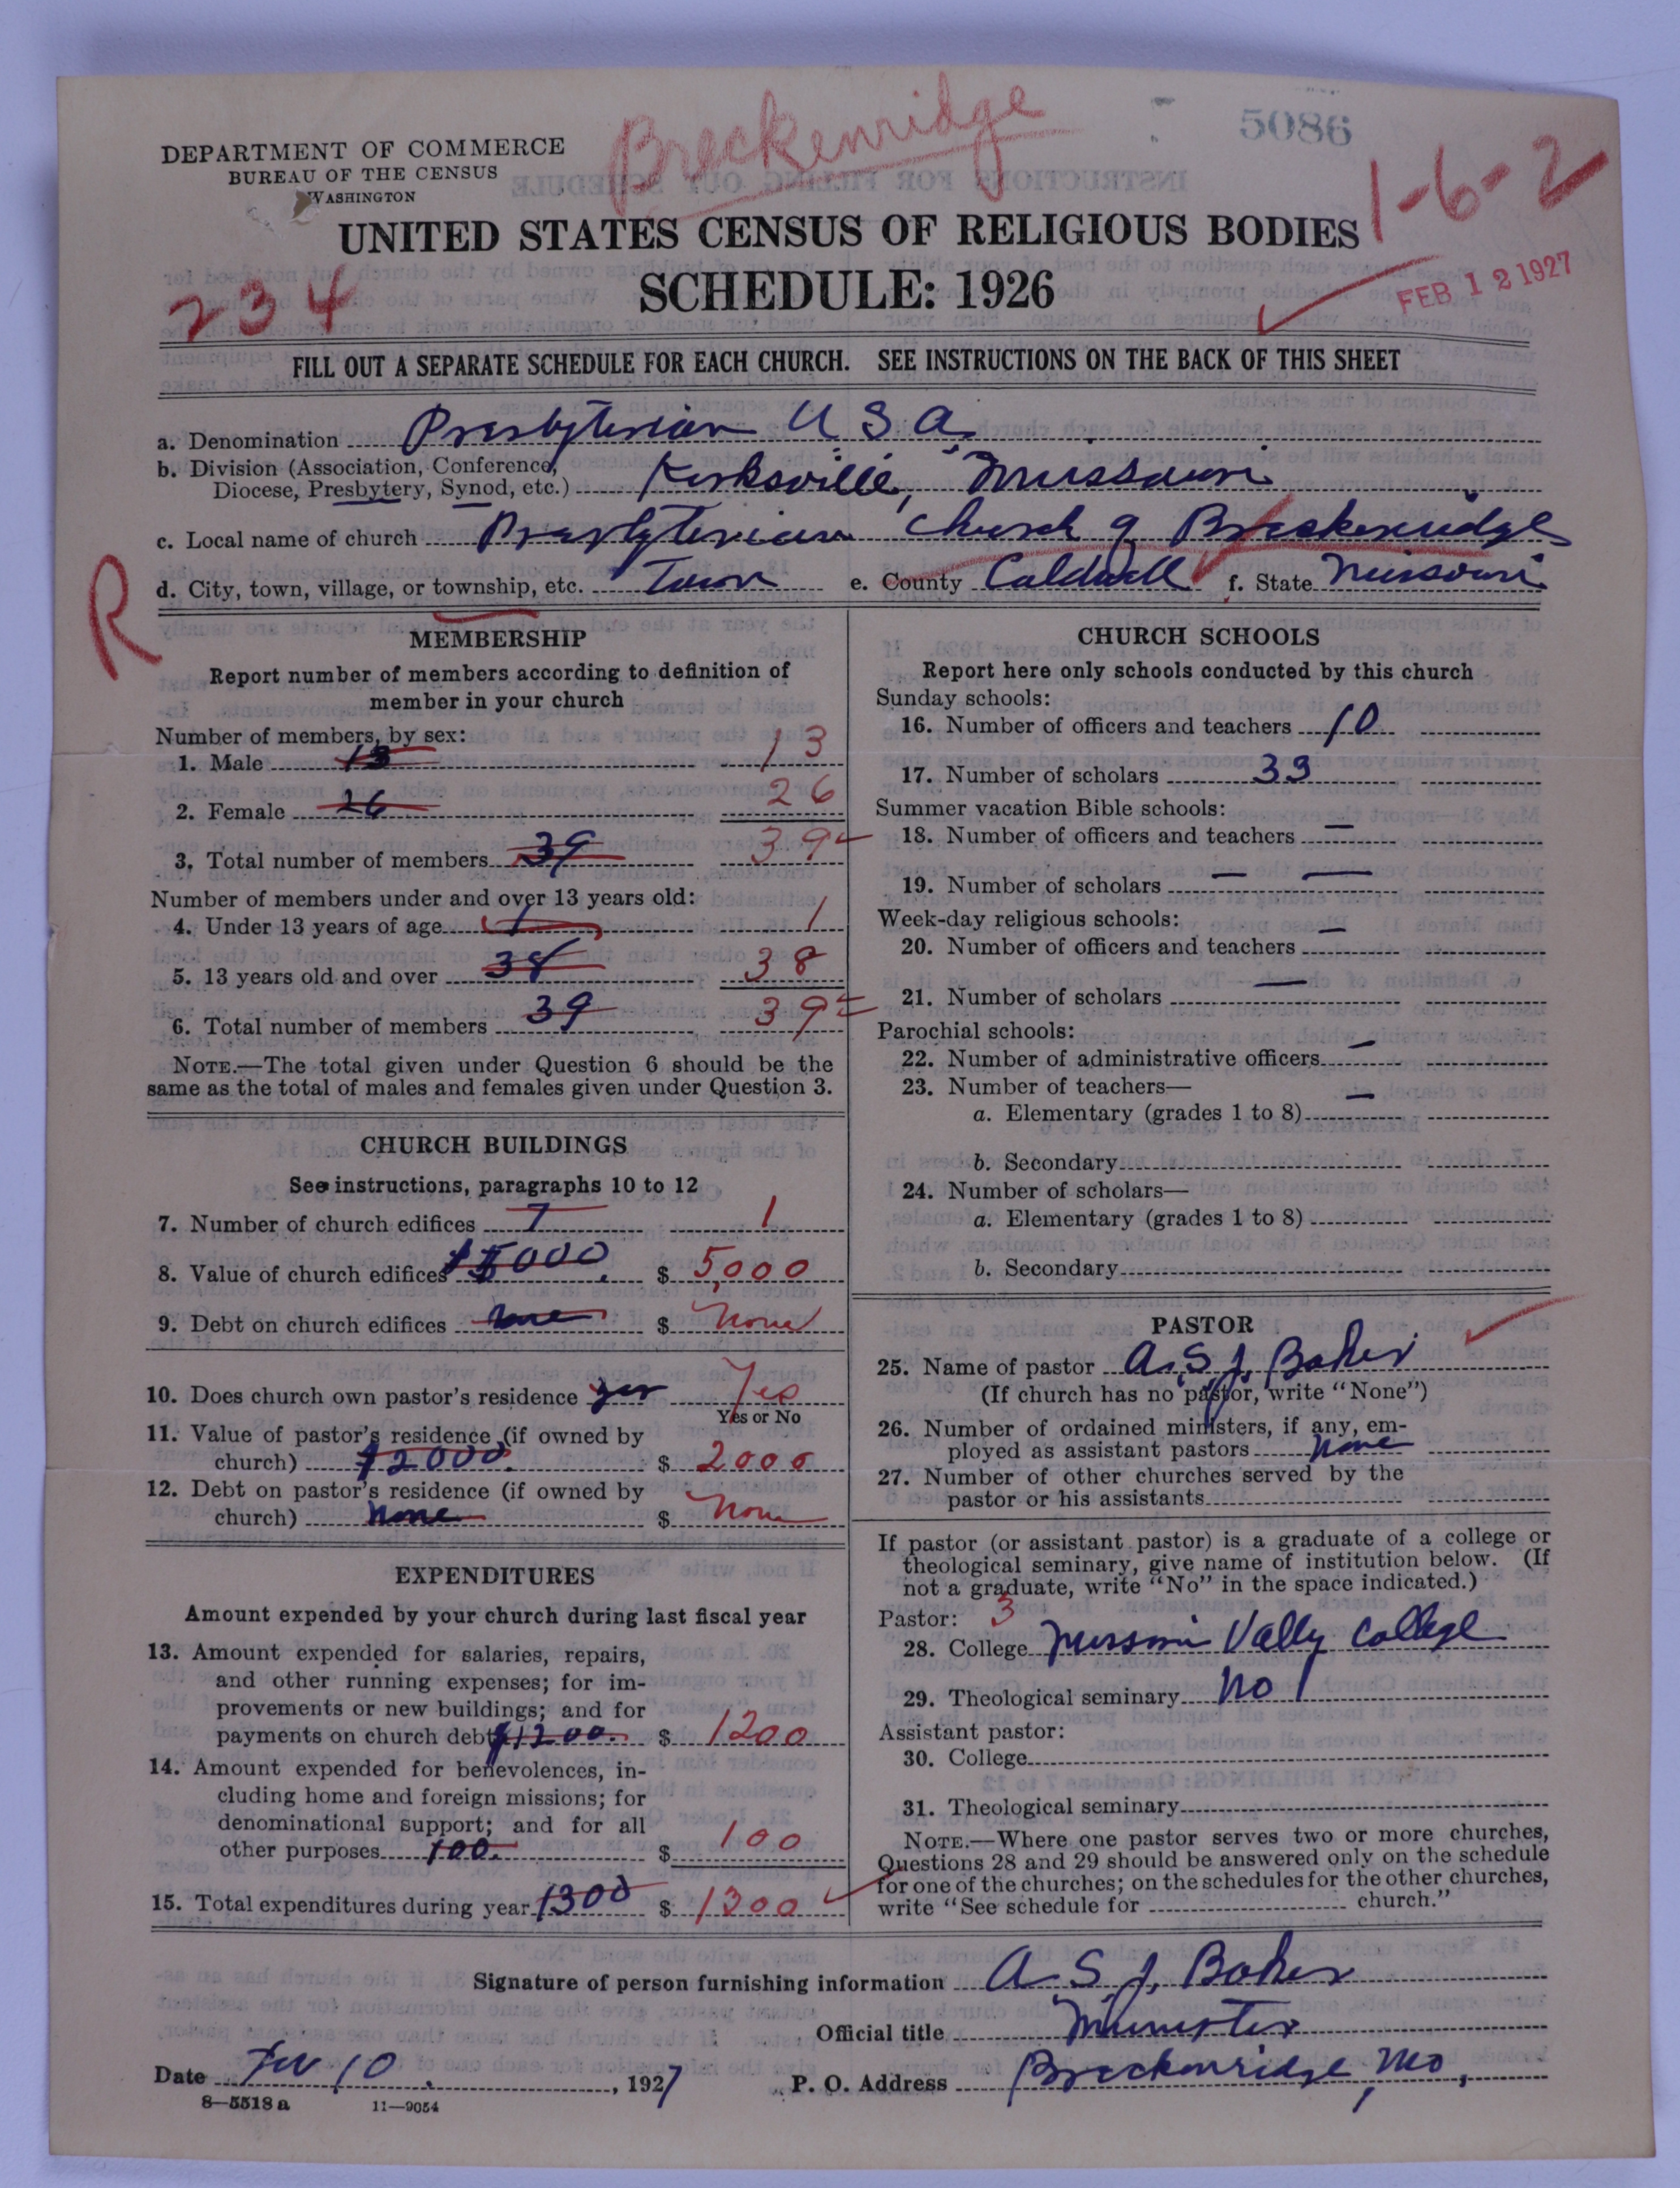 Breckenridge
5086
DEPARTMENT OF COMMERCE
BUREAU OF THE CENSUS
WASHINGTON
1-6-2
UNITED STATES CENSUS OF RELIGIOUS BODIES
SCHEDULE: 1926
234
FEB 12 1927
FILL OUT A SEPARATE SCHEDULE FOR EACH CHURCH. SEE INSTRUCTIONS ON THE BACK OF THIS SHEET
a. Denomination Presbyterian U.S.A.
b. Division (Association, Conference,
Diocese, Presbytery, Synod, etc.) Kirksville, Missouri
c. Local name of church Presbyterian Church of Breckenridge
d. City, town, village, or township, etc. Town e. County Caldwell f. State Missouri
R
MEMBERSHIP
Report number of members according to definition of
member in your church
Number of members, by sex:
1. Male 13 13
2. Female 26 26
3. Total number of members 39 39
Number of members under and over 13 years old:
4. Under 13 years of age 1 1
5. 13 years old and over 38 38
6. Total number of members 39 39
NOTE.—The total given under Question 6 should be the
same as the total of males and females given under Question 3.
CHURCH BUILDINGS
See instructions, paragraphs 10 to 12
7. Number of church edifices 1 1
8. Value of church edifices $5000. $ 5,000
9. Debt on church edifices none $ None
10. Does church own pastor's residence yes Yes
Yes or No
11. Value of pastor's residence (if owned by
church) $2000. $ 2000
12. Debt on pastor's residence (if owned by
church) None $ None
EXPENDITURES
Amount expended by your church during last fiscal year
13. Amount expended for salaries, repairs,
and other running expenses; for im-
provements or new buildings; and for
payments on church debt $1200. $ 1200
14. Amount expended for benevolences, in-
cluding home and foreign missions; for
denominational support; and for all
other purposes 100. $ 100
15. Total expenditures during year 1300 $ 1300
CHURCH SCHOOLS
Report here only schools conducted by this church
Sunday schools:
16. Number of officers and teachers 10
17. Number of scholars 33
Summer vacation Bible schools:
18. Number of officers and teachers —
19. Number of scholars — —
Week-day religious schools:
20. Number of officers and teachers —
21. Number of scholars —
Parochial schools:
22. Number of administrative officers —
23. Number of teachers—
a. Elementary (grades 1 to 8) —
b. Secondary
24. Number of scholars—
a. Elementary (grades 1 to 8)
b. Secondary
PASTOR
25. Name of pastor A. S. J. Baker
(If church has no pastor, write "None")
26. Number of ordained ministers, if any, em-
ployed as assistant pastors None
27. Number of other churches served by the
pastor or his assistants
If pastor (or assistant pastor) is a graduate of a college or
theological seminary, give name of institution below. (If
not a graduate, write "No" in the space indicated.)
Pastor: 3
28. College Missouri Vally College
29. Theological seminary No
Assistant pastor:
30. College
31. Theological seminary
NOTE.—Where one pastor serves two or more churches,
Questions 28 and 29 should be answered only on the schedule
for one of the churches; on the schedules for the other churches,
write "See schedule for church."
Signature of person furnishing information A. S. J. Baker
Official title Minister
Date Fev 10. , 1927 P. O. Address Breckenridge, Mo,
8—5518 a 11—9054